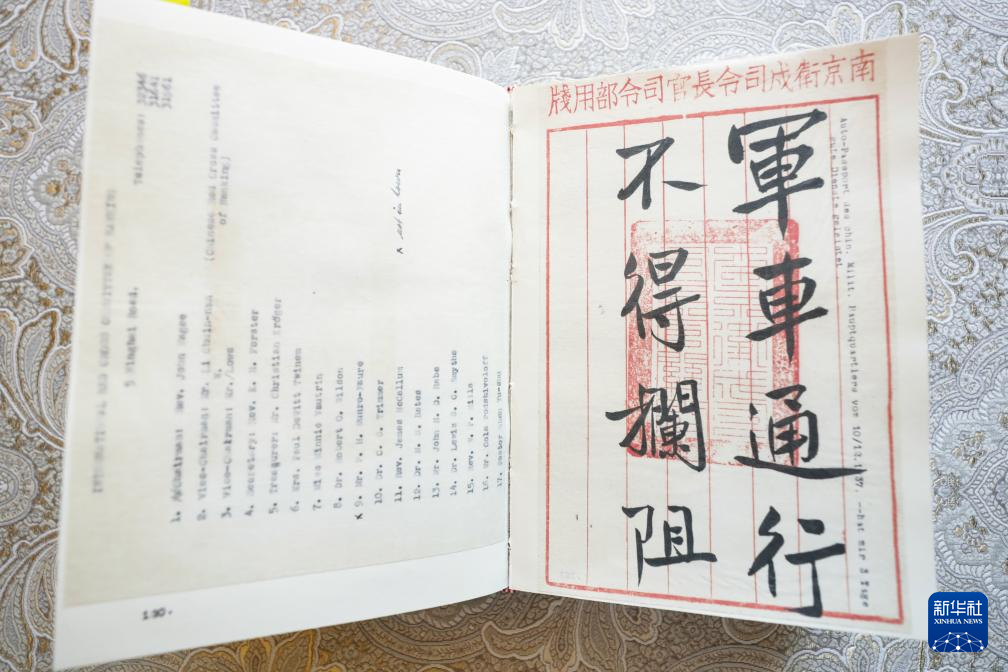 Telephones: 
5 Ninghai Road.
1. Chairman: Rev. John Magee
2. Vice-Chairman: Mr. Li Chuin-nan (Chinese Red Cross Committee
of Nanking)
3. Vice-Chairman: Mr. W. Lowe
4. Secretary: Rev. E. H. Forster
5. Treasurer: Mr. Christian Kröger
6. Mrs. Paul DeWitt Twinem
7. Miss Minnie Vautrin
8. Dr. Robert O. Wilson
x 9. Mr. P. H. Munro-Faure
10. Dr. C. S. Trimmer
11. Rev. James McCallum
12. Dr. M. S. Bates
13. Mr. John H. D. Rabe
14. Dr. Lewis S. C. Smythe
15. Rev. W. P. Mills
16. Mr. Cola Podshivoloff
17. Pastor Shen Yu-shu
x not in town
190.
南京衛戍司令長官司令部用牋
軍車通行
不得攔阻
Auto-Passport des chin. Milit. Hauptquartiers vom 10/12.1937. --hat mir 3 Tage
gute Dienste geleistet
新华社
XINHUA NEWS